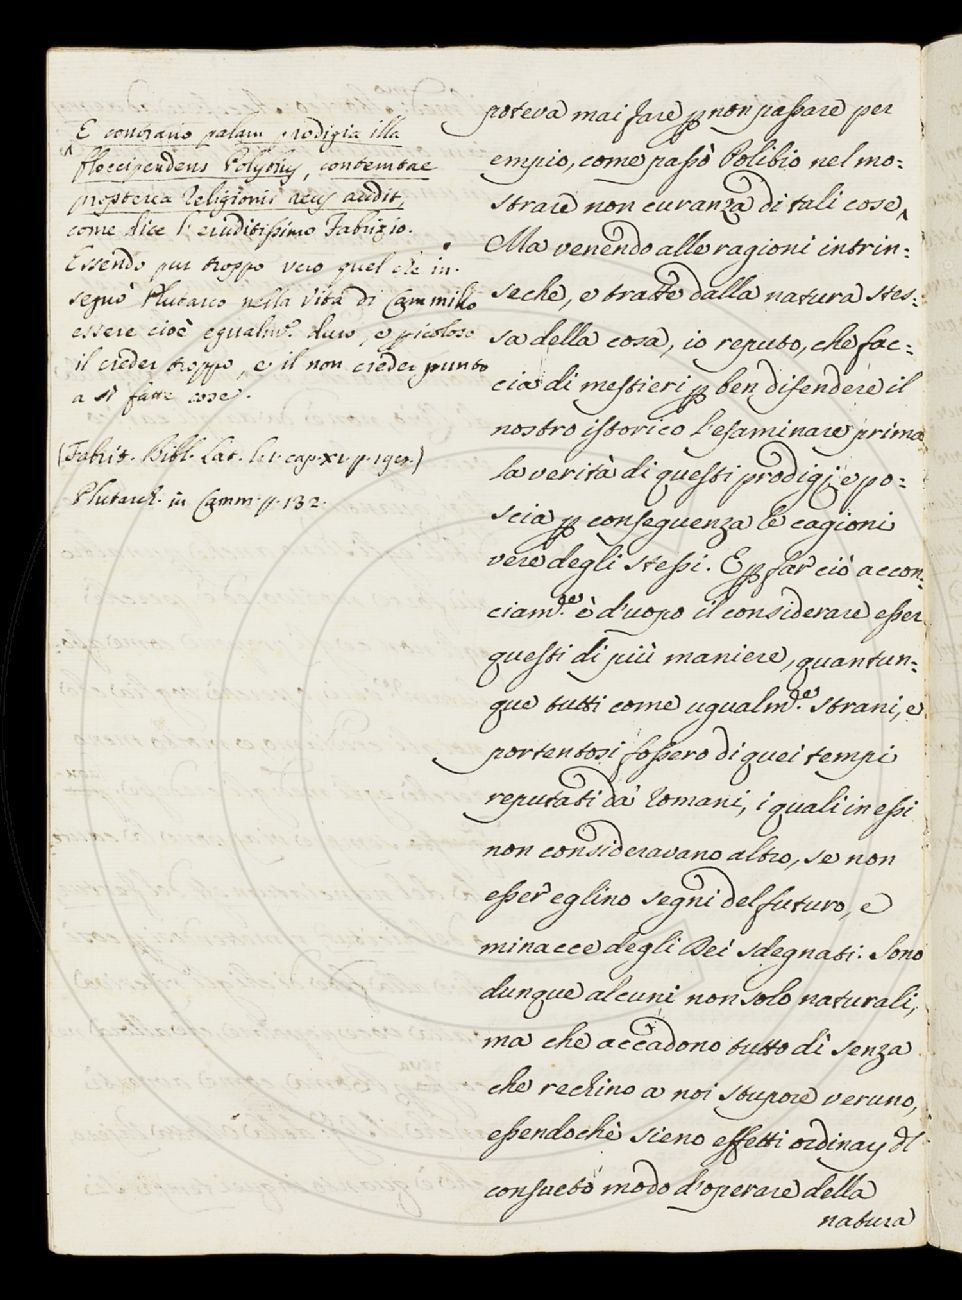 E contrario palam prodigia illa
floccipendens Polybius, contemtae
propterea Religionis reus audit,
come dice l'eruditissimo Fabrizio.
Essendo pur troppo vero quel che in-
segnò Plutarco nella Vita di Cammillo
essere cioè egualm.e duro, e picoloso
il creder troppo, e il non creder punto
a sì fatte cose.
(Fabrit. Bibl. Lat. l.1. cap. XI. p. 192.)
Plutarch. in Camm. p. 132.
poteva mai fare p non passare per
empio, come passò Polibio nel mo-
strare non curanza di tali cose
Ma venendo alle ragioni intrin-
seche, e tratte dalla natura stes-
sa della cosa, io reputo, che fac-
cia di mestieri p ben difendere il
nostro istorico l'esaminare prima
la verità di questi prodigi, e po-
scia p conseguenza le cagioni
vere degli stessi. E p far ciò accon-
ciam.te è d'uopo il considerare esser
questi di più maniere, quantun-
que tutti come ugualm.te strani, e
portentosi fossero di quei tempi
reputati da' Romani, i quali in essi
non consideravano altro, se non
esser eglino segni del futuro, e
minacce degli Dei sdegnati. Sono
dunque alcuni non solo naturali,
ma che accadono tutto dì senza
che rechino a noi stupore veruno,
essendochè sieno effetti ordinarj dl
consueto modo d'operare della
natura